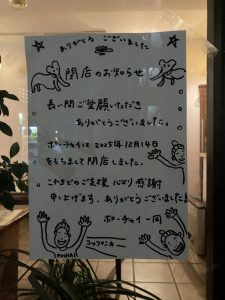 ありがとう ございました
閉店のお知らせ
長い間ご愛顧いただき
ありがとうございました。
ポーチャイは2025年12月14日
をもちまして閉店しました。
これまでのご支援 心より感謝
申し上げます。ありがとうございました!
ポーチャイ一同
コップンカー